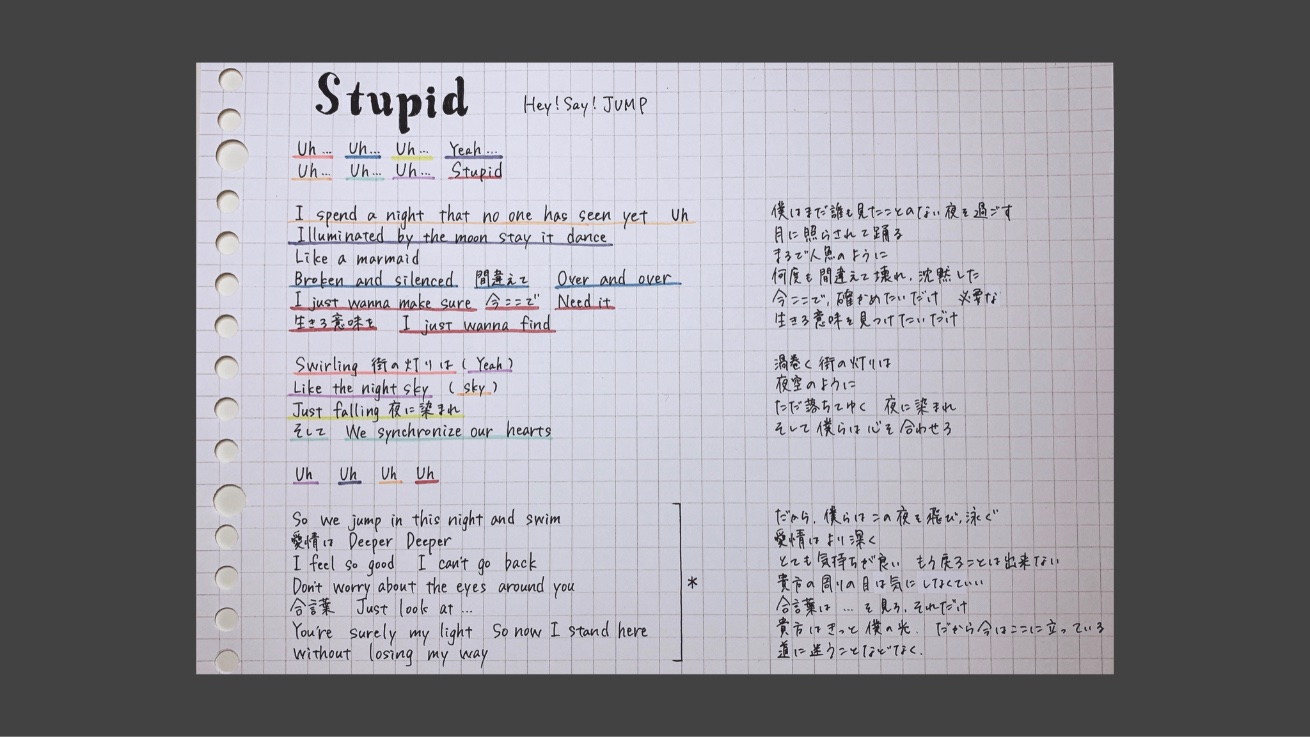 Stupid Hey! Say! JUMP
Uh... Uh... Uh... Yeah...
Uh... Uh... Uh... Stupid
I spend a night that no one has seen yet Uh
Illuminated by the moon stay it dance
Like a marmaid
Broken and silenced 間違えて Over and over
I just wanna make sure 今ここで Need it
生きる意味を I just wanna find
Swirling 街の灯りは (Yeah)
Like the night sky (sky)
Just falling 夜に染まれ
そして We synchronize our hearts
Uh Uh Uh Uh
So we jump in this night and swim
愛情は Deeper Deeper
I feel so good I can't go back
Don't worry about the eyes around you
合言葉 Just look at ...
You're surely my light So now I stand here
without losing my way
*
僕はまだ誰も見たことのない夜を過ごす
月に照らされて踊る
まるで人魚のように
何度も間違えて壊れ、沈黙した
今ここで、確かめたいだけ 必要な
生きる意味を見つけたいだけ
渦巻く街の灯りは
夜空のように
ただ落ちてゆく 夜に染まれ
そして僕らは心を合わせる
だから、僕らはこの夜を飛び、泳ぐ
愛情はより深く
とても気持ちが良い もう戻ることは出来ない
貴方の周りの目は気にしなくていい
合言葉は ... を見ろ、それだけ
貴方はきっと僕の光. だから今はここに立っている
道に迷うことなどなく.